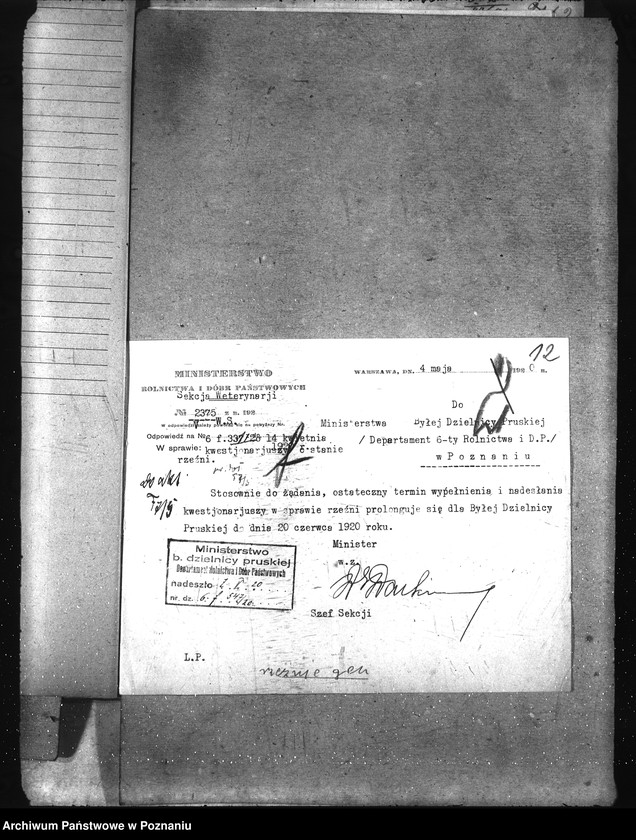 12
MINISTERSTWO
ROLNICTWA I DÓBR PAŃSTWOWYCH
Sekcja Weterynarji
WARSZAWA, DN. 4 maja 1920 R.
№ 2375 z R. 192
W.S.
Do
Ministerstwa Byłej Dzielnicy Pruskiej
Odpowiedź na № 6 f. 14 kwietnia
/ Departament 6-ty Rolnictwa i D.P./
W sprawie: kwestjonarjuszy o stanie
rzeźni.
w Poznaniu
Do akt
Stosownie do żądania, ostateczny termin wypełnienia i nadesłania
kwestjonarjuszy w sprawie rzeźni prolonguje się dla Byłej Dzielnicy
Pruskiej do dnia 20 czerwca 1920 roku.
Minister
w.z.
Szef Sekcji
Ministerstwo
b. dzielnicy pruskiej
Departament Rolnictwa i Dóbr Państwowych
nadeszło
nr. dz. 6. f.
L.P.
rzeźnie gen
Archiwum Państwowe w Poznaniu